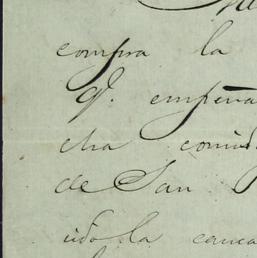 compra la
q.e empeña
cha comi
de San
ido la causa